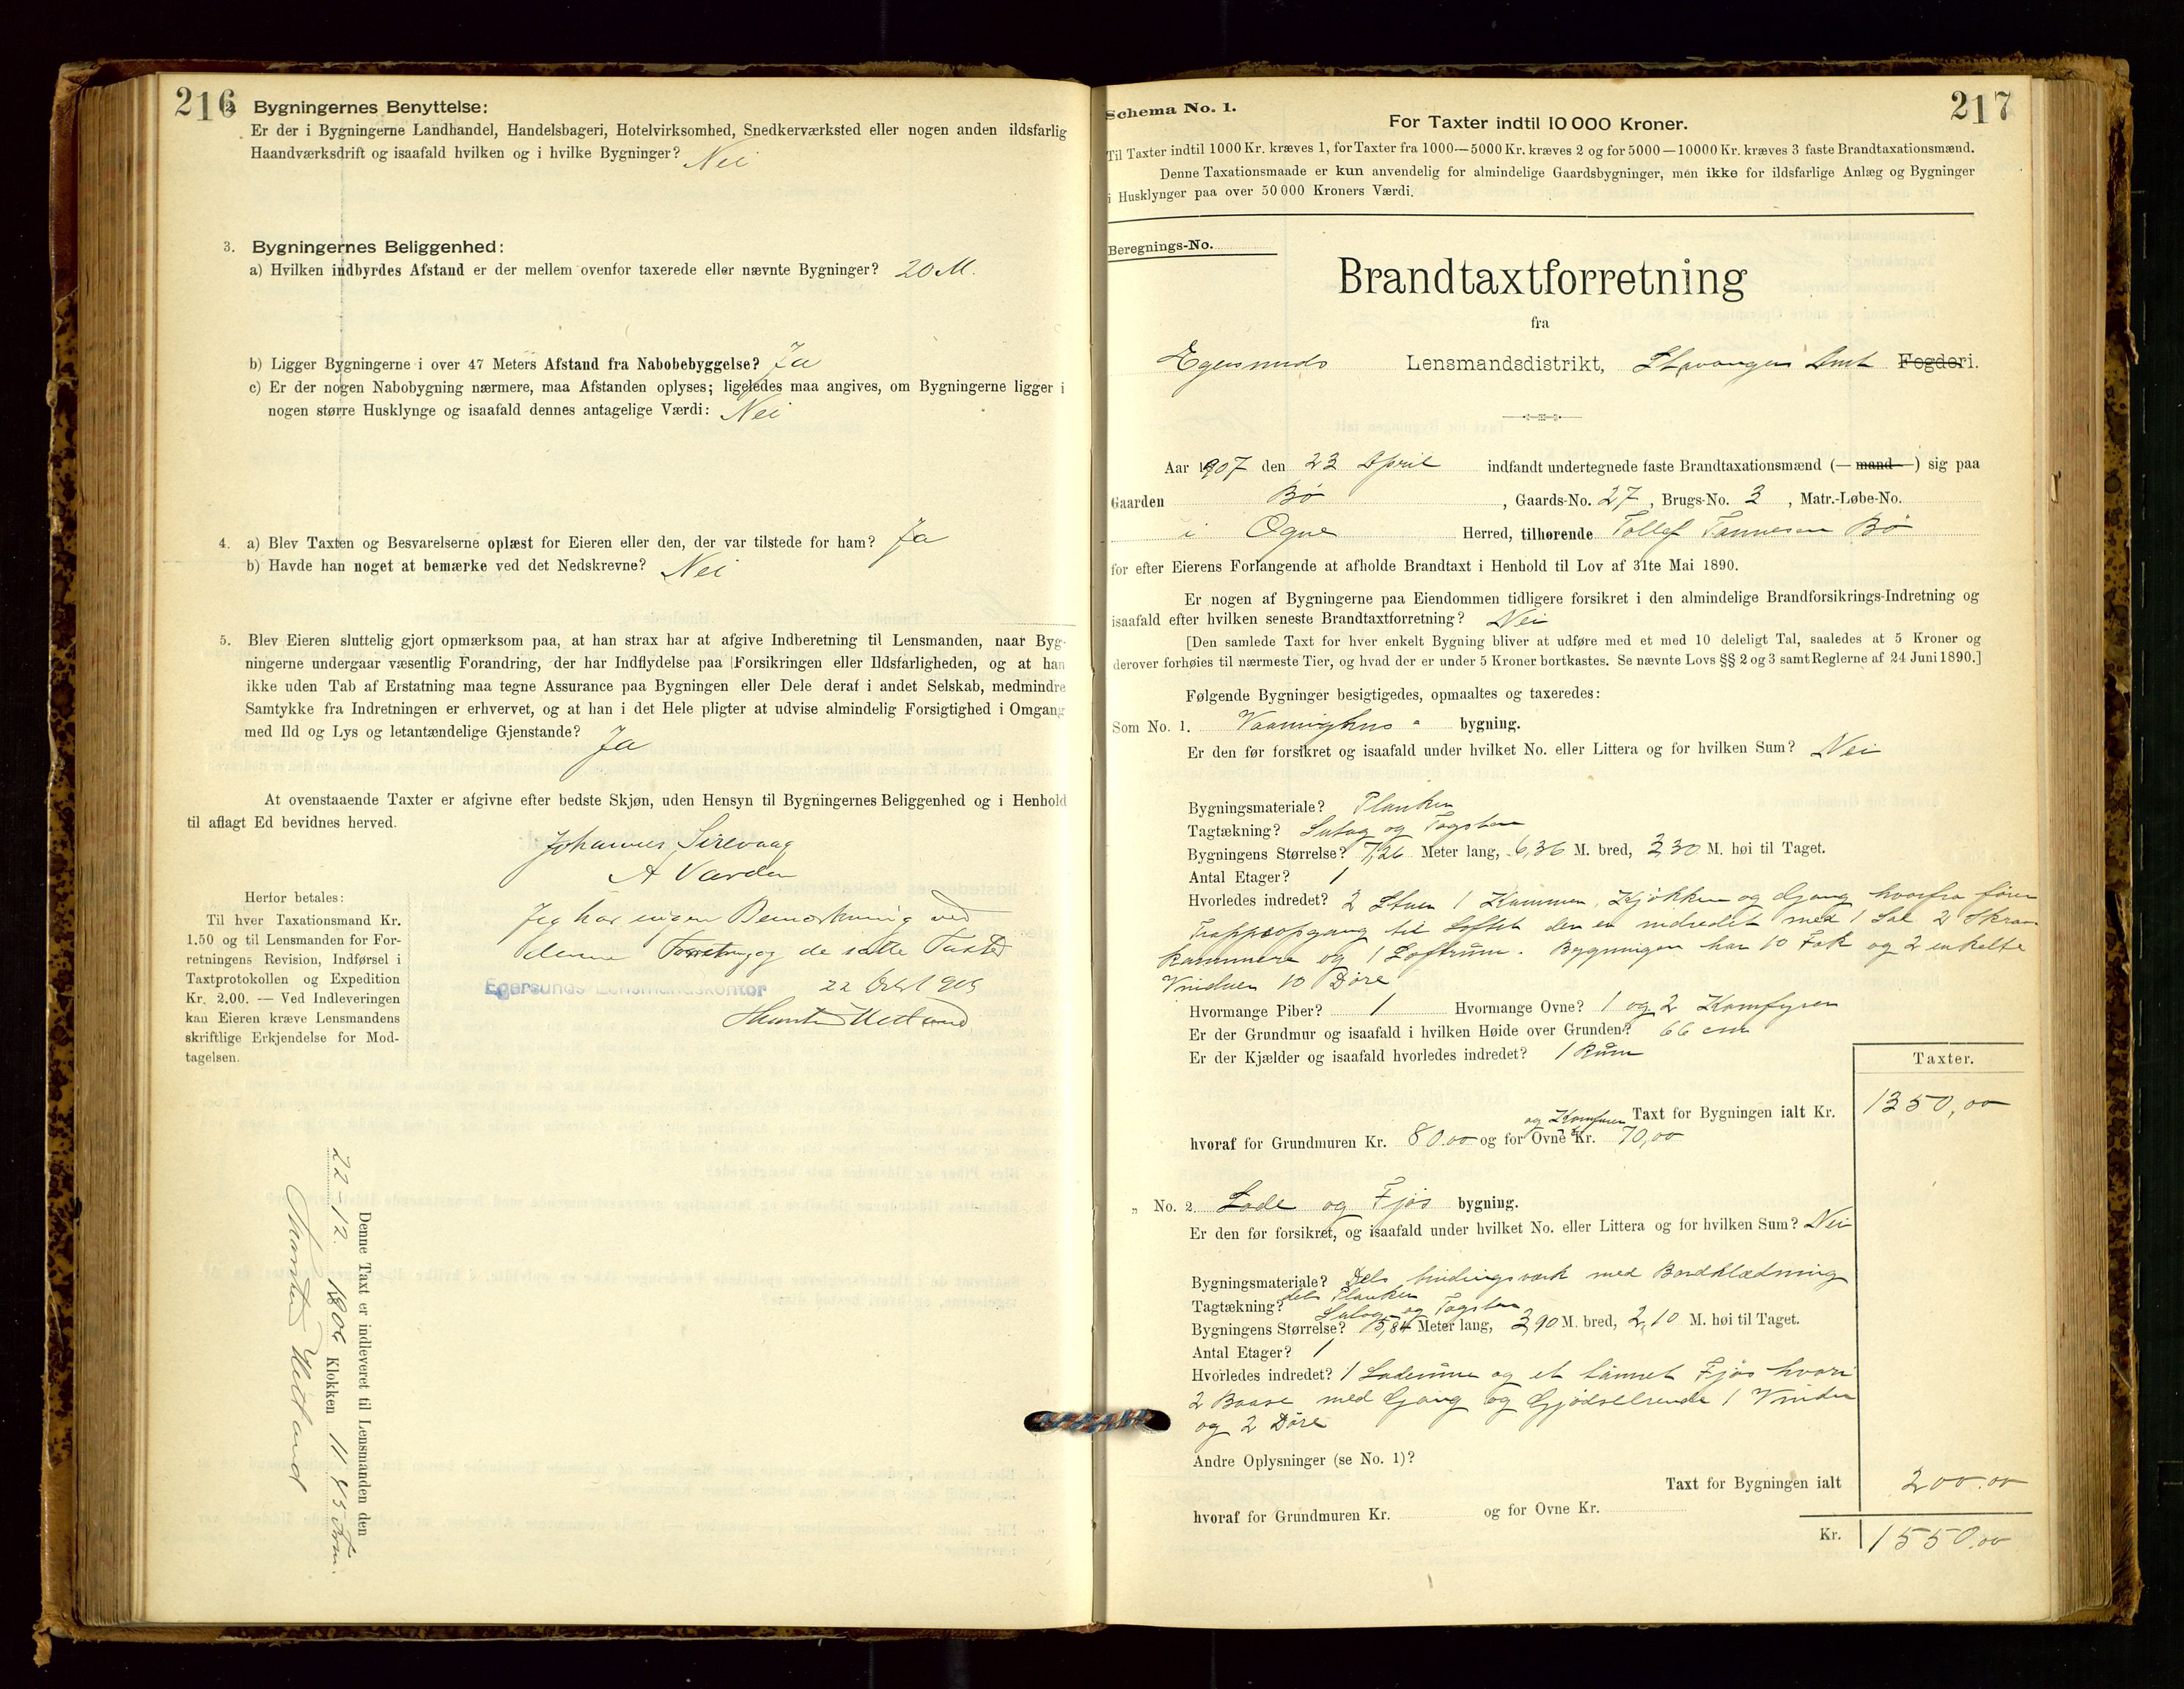 216
2. Bygningernes Benyttelse:
Er der i Bygningerne Landhandel, Handelsbageri, Hotelvirksomhed, Snedkerværksted eller nogen anden ildsfarlig
Haandværksdrift og isaafald hvilken og i hvilke Bygninger? Nei
3. Bygningernes Beliggenhed:
a) Hvilken indbyrdes Afstand er der mellem ovenfor taxerede eller nævnte Bygninger? 20 M.
b) Ligger Bygningerne i over 47 Meters Afstand fra Nabobebyggelse? Ja
c) Er der nogen Nabobygning nærmere, maa Afstanden oplyses; ligeledes maa angives, om Bygningerne ligger i
nogen større Husklynge og isaafald dennes antagelige Værdi: Nei
4. a) Blev Taxten og Besvarelserne oplæst for Eieren eller den, der var tilstede for ham? Ja
b) Havde han noget at bemærke ved det Nedskrevne? Nei
5. Blev Eieren sluttelig gjort opmærksom paa, at han strax har at afgive Indberetning til Lensmanden, naar Byg-
ningerne undergaar væsentlig Forandring, der har Indflydelse paa Forsikringen eller Ildsfarligheden, og at han
ikke uden Tab af Erstatning maa tegne Assurance paa Bygningen eller Dele deraf i andet Selskab, medmindre
Samtykke fra Indretningen er erhvervet, og at han i det Hele pligter at udvise almindelig Forsigtighed i Omgang
med Ild og Lys og letantændelige Gjenstande? Ja
At ovenstaaende Taxter er afgivne efter bedste Skjøn, uden Hensyn til Bygningernes Beliggenhed og i Henhold
til aflagt Ed bevidnes herved.
Johannes Sirevaag
A Varden
Jeg har ingen Bemærkning ved
denne Forretning og de satte Taxter
Egersunds Lensmandskontor 22
Hetland
Herfor betales:
Til hver Taxationsmand Kr.
1.50 og til Lensmanden for For-
retningens Revision, Indførsel i
Taxtprotokollen og Expedition
Kr. 2.00. — Ved Indleveringen
kan Eieren kræve Lensmandens
skriftlige Erkjendelse for Mod-
tagelsen.
Denne Taxt er indleveret til Lensmanden den
22-12. 1906 Klokken 11
Hetland
Schema No. 1.
217
For Taxter indtil 10 000 Kroner.
Til Taxter indtil 1000 Kr. kræves 1, for Taxter fra 1000—5000 Kr. kræves 2 og for 5000—10000 Kr. kræves 3 faste Brandtaxationsmænd.
Denne Taxationsmaade er kun anvendelig for almindelige Gaardsbygninger, men ikke for ildsfarlige Anlæg og Bygninger
i Husklynger paa over 50 000 Kroners Værdi.
Beregnings-No.
Brandtaxtforretning
fra
Egersunds Lensmandsdistrikt, Stavanger Amt Fogderi.
Aar 1907 den 23 April indfandt undertegnede faste Brandtaxationsmænd (—mand—) sig paa
Gaarden Bø, Gaards-No. 27, Brugs-No. 3, Matr.-Løbe-No.
i Ogne Herred, tilhørende Tollef Tønnesen Bø
for efter Eierens Forlangende at afholde Brandtaxt i Henhold til Lov af 31te Mai 1890.
Er nogen af Bygningerne paa Eiendommen tidligere forsikret i den almindelige Brandforsikrings-Indretning og
isaafald efter hvilken seneste Brandtaxtforretning? Nei
[Den samlede Taxt for hver enkelt Bygning bliver at udføre med et med 10 deleligt Tal, saaledes at 5 Kroner og
derover forhøies til nærmeste Tier, og hvad der er under 5 Kroner bortkastes. Se nævnte Lovs §§ 2 og 3 samt Reglerne af 24 Juni 1890.]
Følgende Bygninger besigtigedes, opmaaltes og taxeredes:
Som No. 1. Vaaninghus bygning.
Er den før forsikret og isaafald under hvilket No. eller Littera og for hvilken Sum? Nei
Bygningsmateriale? Planker
Tagtækning? Sutag og Tagsten
Bygningens Størrelse? 7,26 Meter lang, 6,36 M. bred, 3,30 M. høi til Taget.
Antal Etager? 1
Hvorledes indredet? 2 Stuer 1 Kammer, Kjøkken og Gang hvorfra fører
Trappeopgang til Loftet der er indredet med 1 Sal 2 Skraa
kammere og 1 Loftrum. Bygningen har 10 Fak og 2 enkelte
Vinduer 10 Døre
Hvormange Piber? 1 Hvormange Ovne? 1 og 2 Komfyrer
Er der Grundmur og isaafald i hvilken Høide over Grunden? 66 cm
Er der Kjælder og isaafald hvorledes indredet? 1 Rum
Taxter.
Taxt for Bygningen ialt Kr. 1350,00
hvoraf for Grundmuren Kr. 80.00 og for Ovne og Komfurer Kr. 70,00
„ No. 2. Lade og Fjøs bygning.
Er den før forsikret, og isaafald under hvilket No. eller Littera og for hvilken Sum? Nei
Bygningsmateriale? Dels bindingsværk med Bordklædning
dels Planker
Tagtækning? Sutag og Tagsten
Bygningens Størrelse? 15,84 Meter lang, 3,90 M. bred, 2,10 M. høi til Taget.
Antal Etager? 1
Hvorledes indredet? 1 Laderum og et tømret Fjøs hvori
2 Baase med Gang og Gjødselrende 1 Vindu
og 2 Døre
Andre Oplysninger (se No. 1)?
Taxt for Bygningen ialt 200.00
hvoraf for Grundmuren Kr. og for Ovne Kr.
Kr. 1550.00